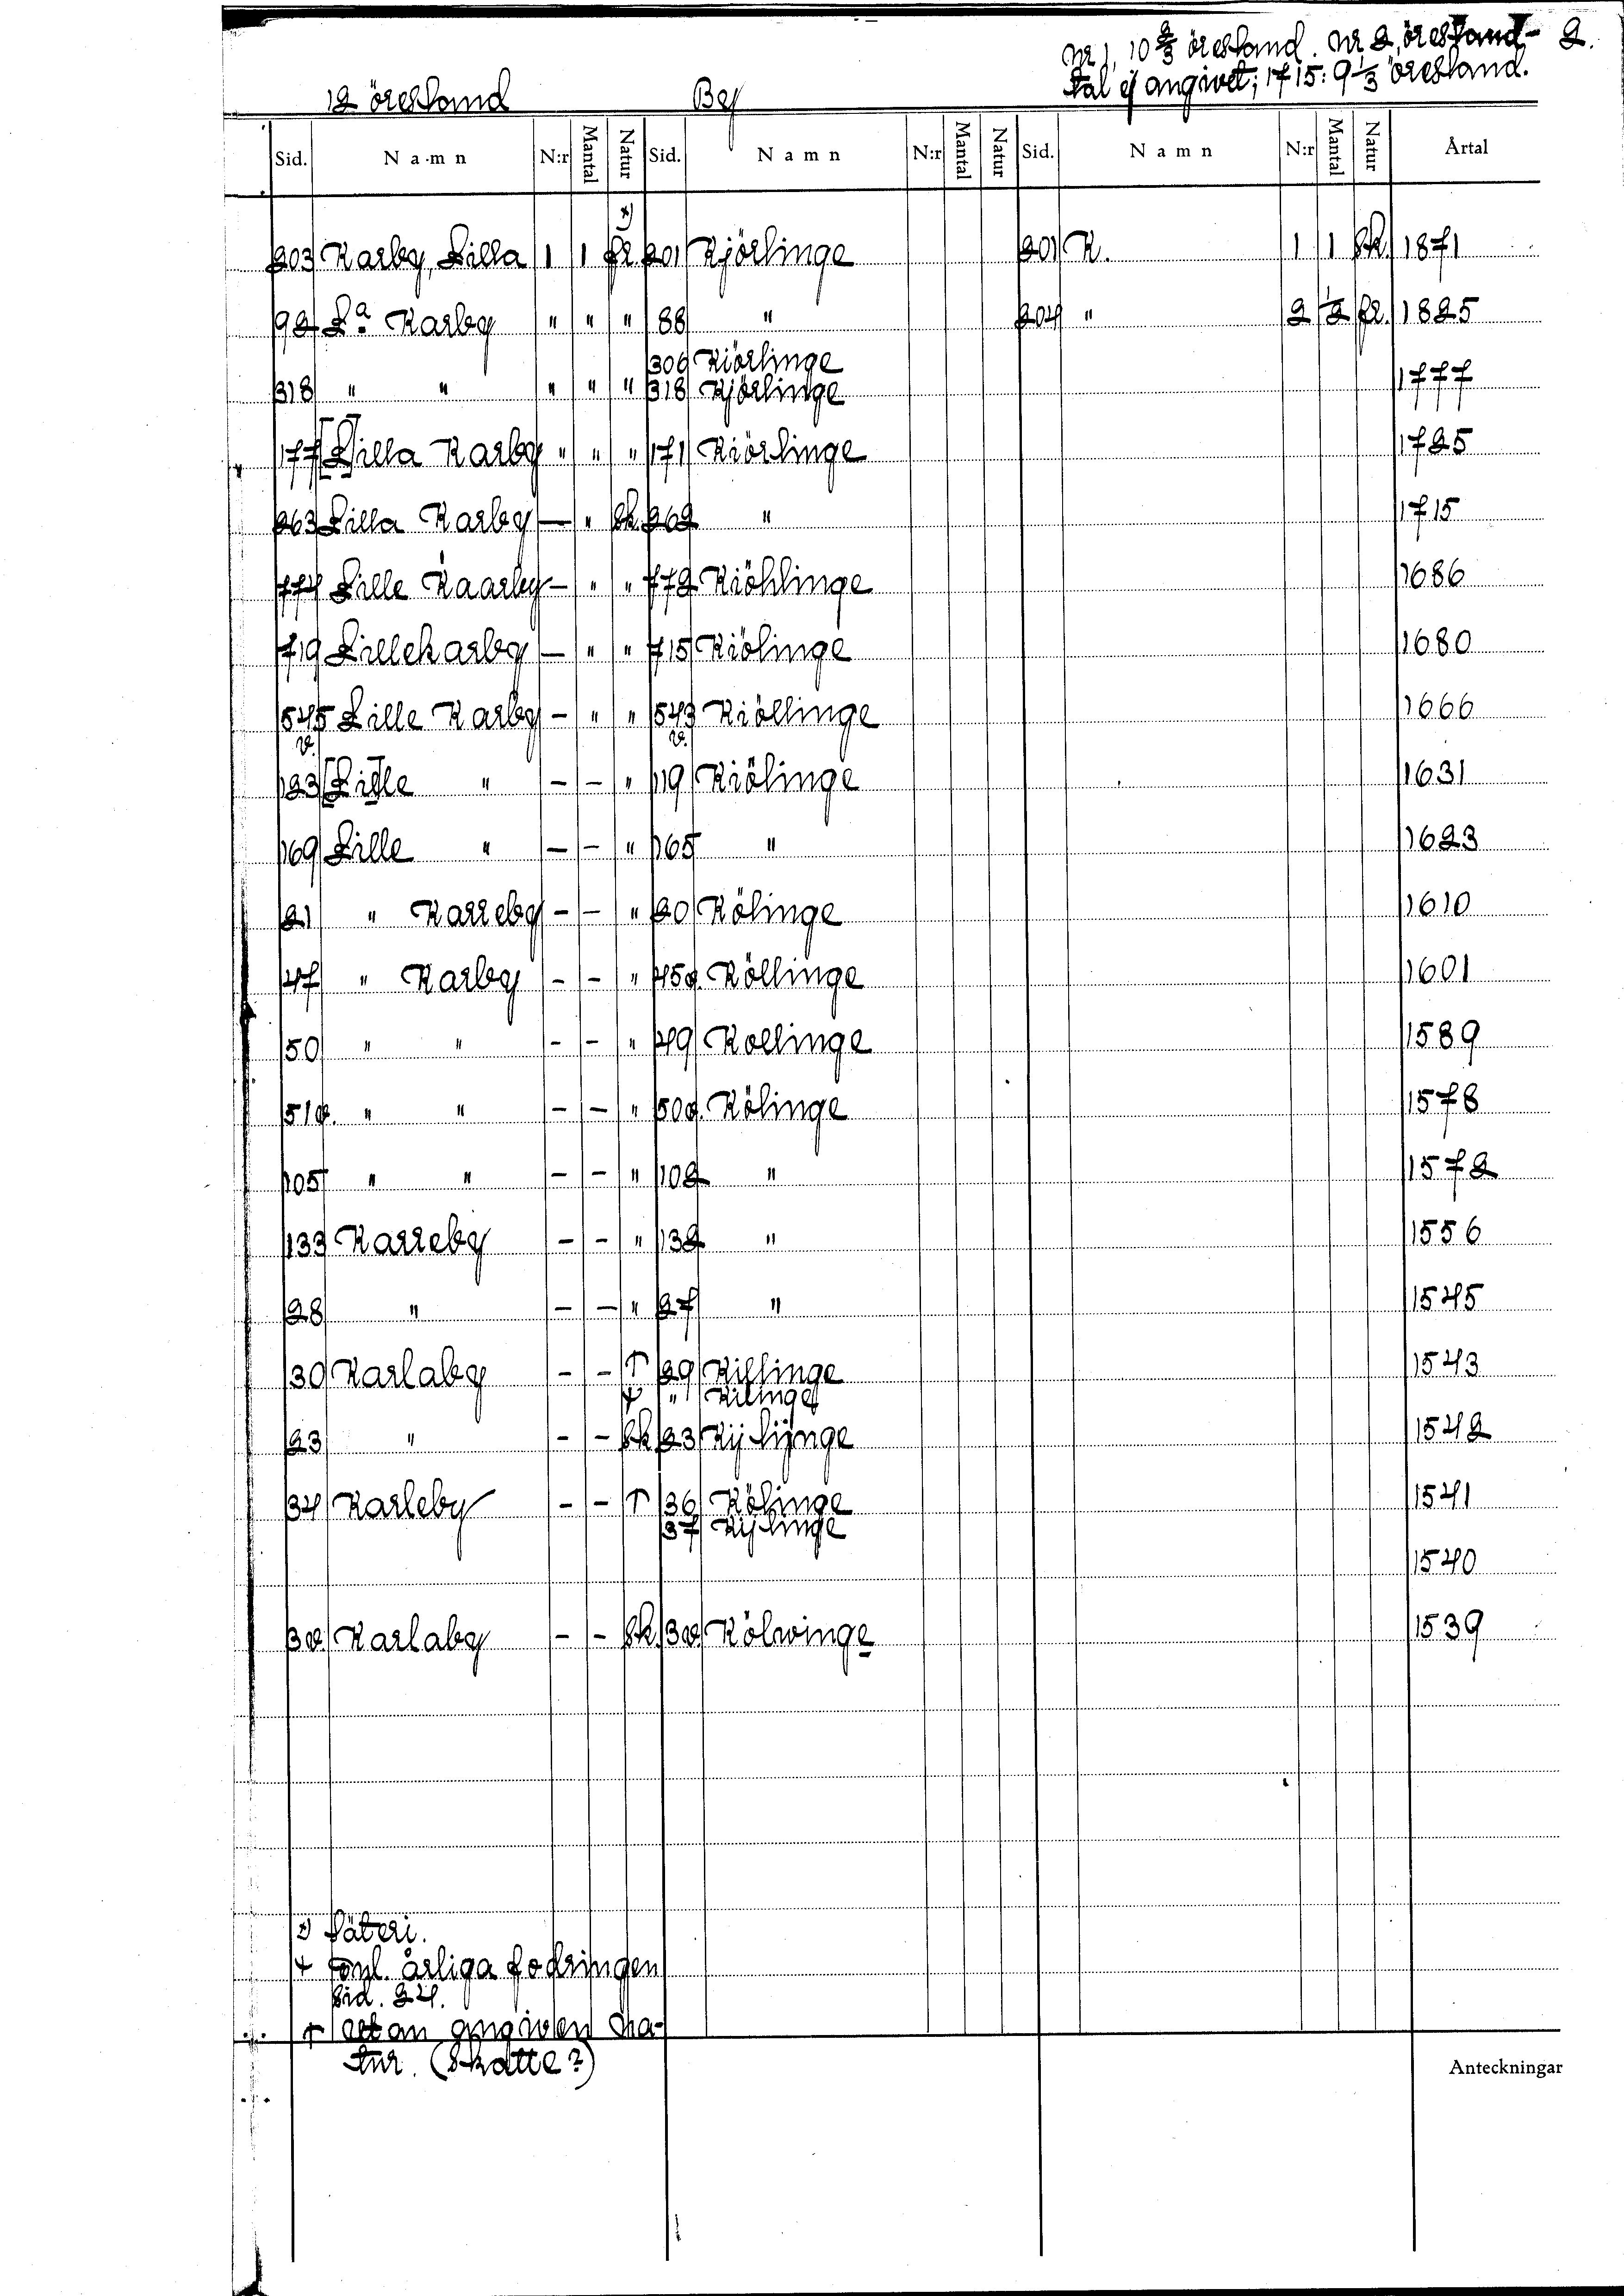 Nr 1, 10 2/3 öresland. Nr 2, öresland- 2.
tal ej angivet; 1715: 9 1/3 öresland.
12 öresland By
Sid. Namn N:r Mantal Natur Sid. Namn N:r Mantal Natur Sid. Namn N:r Mantal Natur Årtal
x)
203 Karby, Lilla 1 1 fr. 201 Kjörlinge 201 K. 1 1 sk. 1871
92 La Karby " " " 88 " 204 " 2 1/2 fr. 1825
306 Kiörlinge
318 " " " " " 318 Kjörlinge 1777
177 [L]illa Karby " " " 171 Kiörlinge 1725
263 Lilla Karby — " sk. 262 " 1715
774 Lille Kaarby — " " 772 Kiöhlinge 1686
719 Lillekarby — " " 715 Kiölinge 1680
545 Lille Karby — " " 543 Kiöllinge 1666
v. v.
123 [Li]lle " — — " 119 Kiölinge 1631
169 Lille " — — " 165 " 1623
21 " Karreby — — " 20 Kölinge 1610
47 " Karby — — " 45v. Köllinge 1601
50 " " — — " 49 Kollinge 1589
51v. " " — — " 50v. Kölinge 1578
105 " " — — " 102 " 1572
133 Karreby — — " 132 " 1556
28 " — — " 27 " 1545
30 Karlaby — — † 29 Killinge 1543
+ " Kilinge
23 " — — sk. 23 Kijlijnge 1542
34 Karleby — — † 36 Kölinge 1541
37 Kijlinge
1540
3v. Karlaby — — sk. 3v. Kölwinge 1539
x) Säteri.
+ Enl. årliga fodringen
sid. 24.
† utan angiven na-
tur. (Skatte?)
Anteckningar